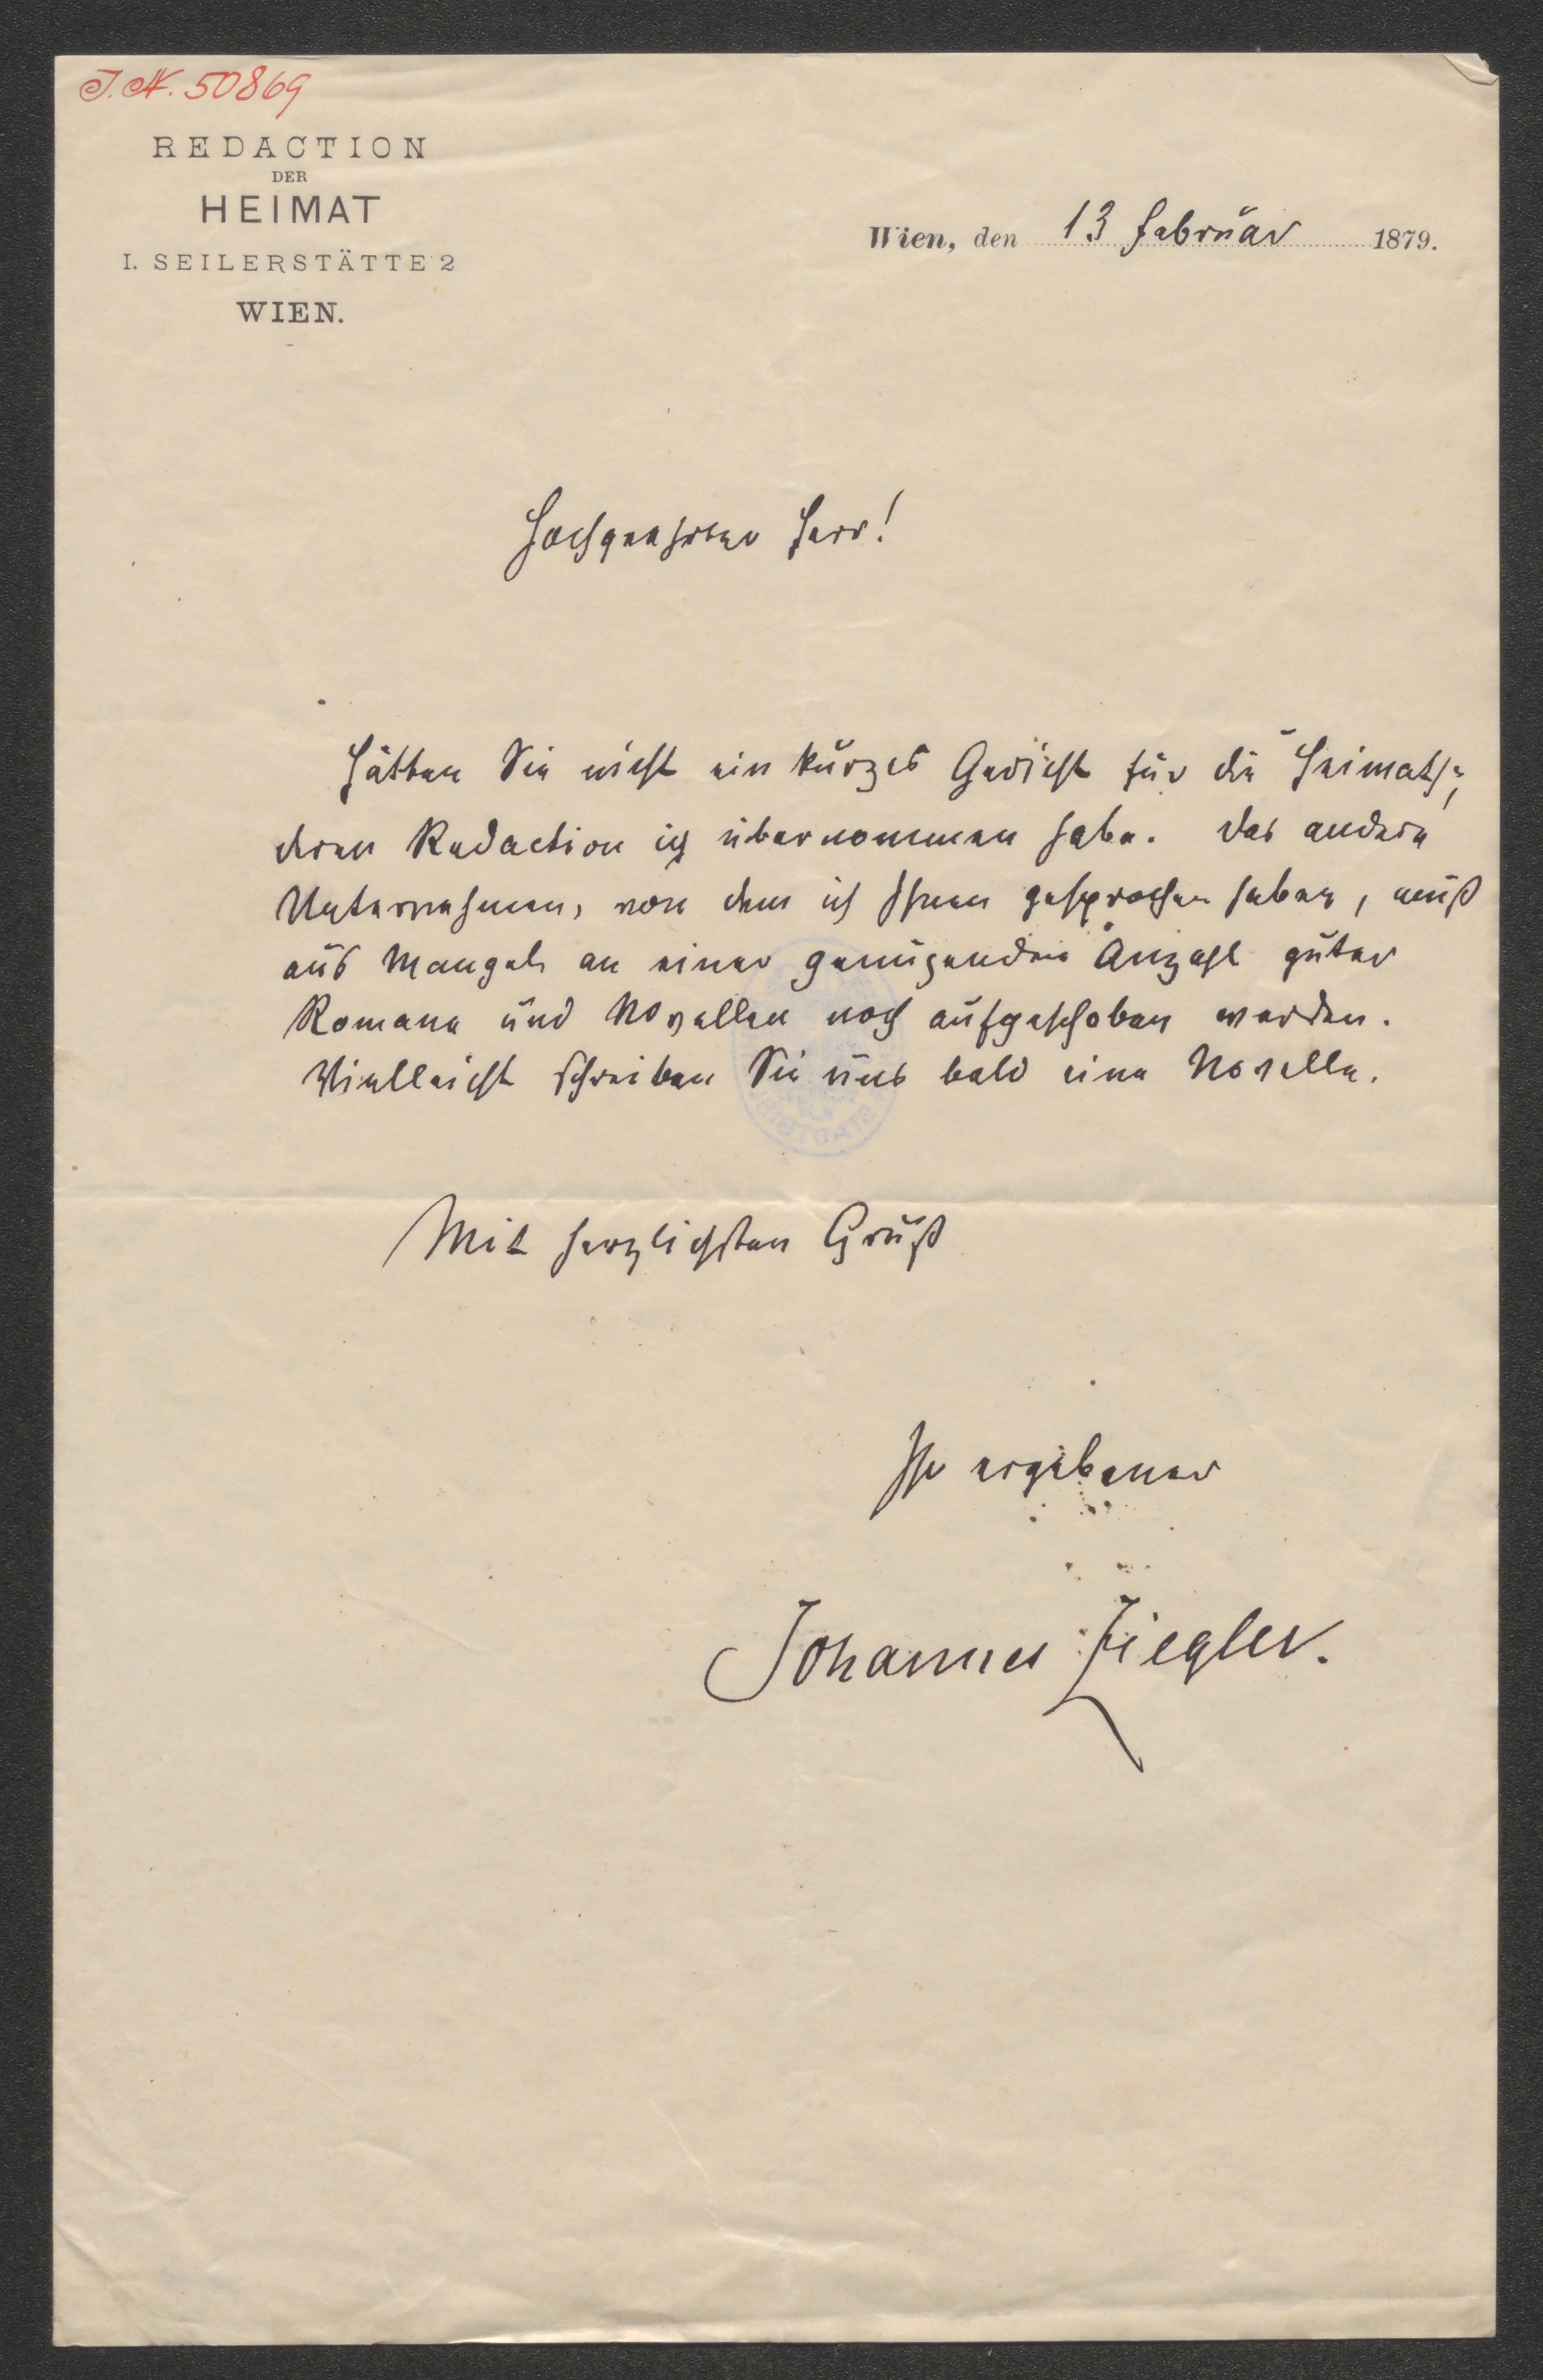 J. N. 50869
REDACTION
DER
HEIMAT
I. SEILERSTÄTTE 2
WIEN.
Wien, den 13 Februar 1879.
Hochgeehrter Herr!
Hätten Sie nicht ein kurzes Gedicht für die „Heimath“,
deren Redaction ich übernommen habe. Das andere
Unternehmen, von dem ich Ihnen gesprochen habe, muß
aus Mangel an einer genügenden Anzahl guter
Romane und Novellen noch aufgeschoben werden.
Vielleicht schreiben Sie uns bald eine Novelle.
Mit herzlichsten Gruß
Ihr ergebener
Johannes Ziegler.